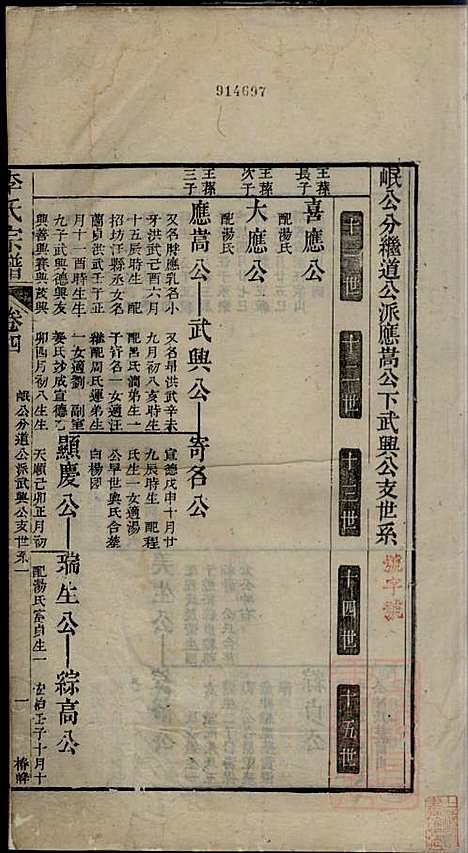 914697
岷公分繼道公派應嵩公下武興公支世系
十一世 十二世 十三世 十四世 十五世
王蓀長子
喜應公
配湯氏
王蓀次子
大應公
配湯氏
王蓀三子
應嵩公 武興公 寄名公
又名勝應乳名小
牙洪武己酉六月
十五辰時生 配
招坊汪縣丞女名
蘭貞洪武壬子正
月十一酉時生生
九子武興德興友
興善興賽興茂興
又名昂洪武辛未
九月初八亥時生
配呂氏潤弟生一
子軒名一女適汪
繼配周氏運弟生
一女適劉 副室
姜氏妙成宣德乙
卯四月初八生生
宣德戊申十月廿
九辰時生 配程
氏生一女適湯
公早世與氏合葬
白楊
顯慶公 瑞生公 綜高公
天順己卯正月初
配湯氏室貞生一
弘治壬子十月十
李氏宗譜 卷四
岷公分道公派武興公支世系一
一
椿
號字號